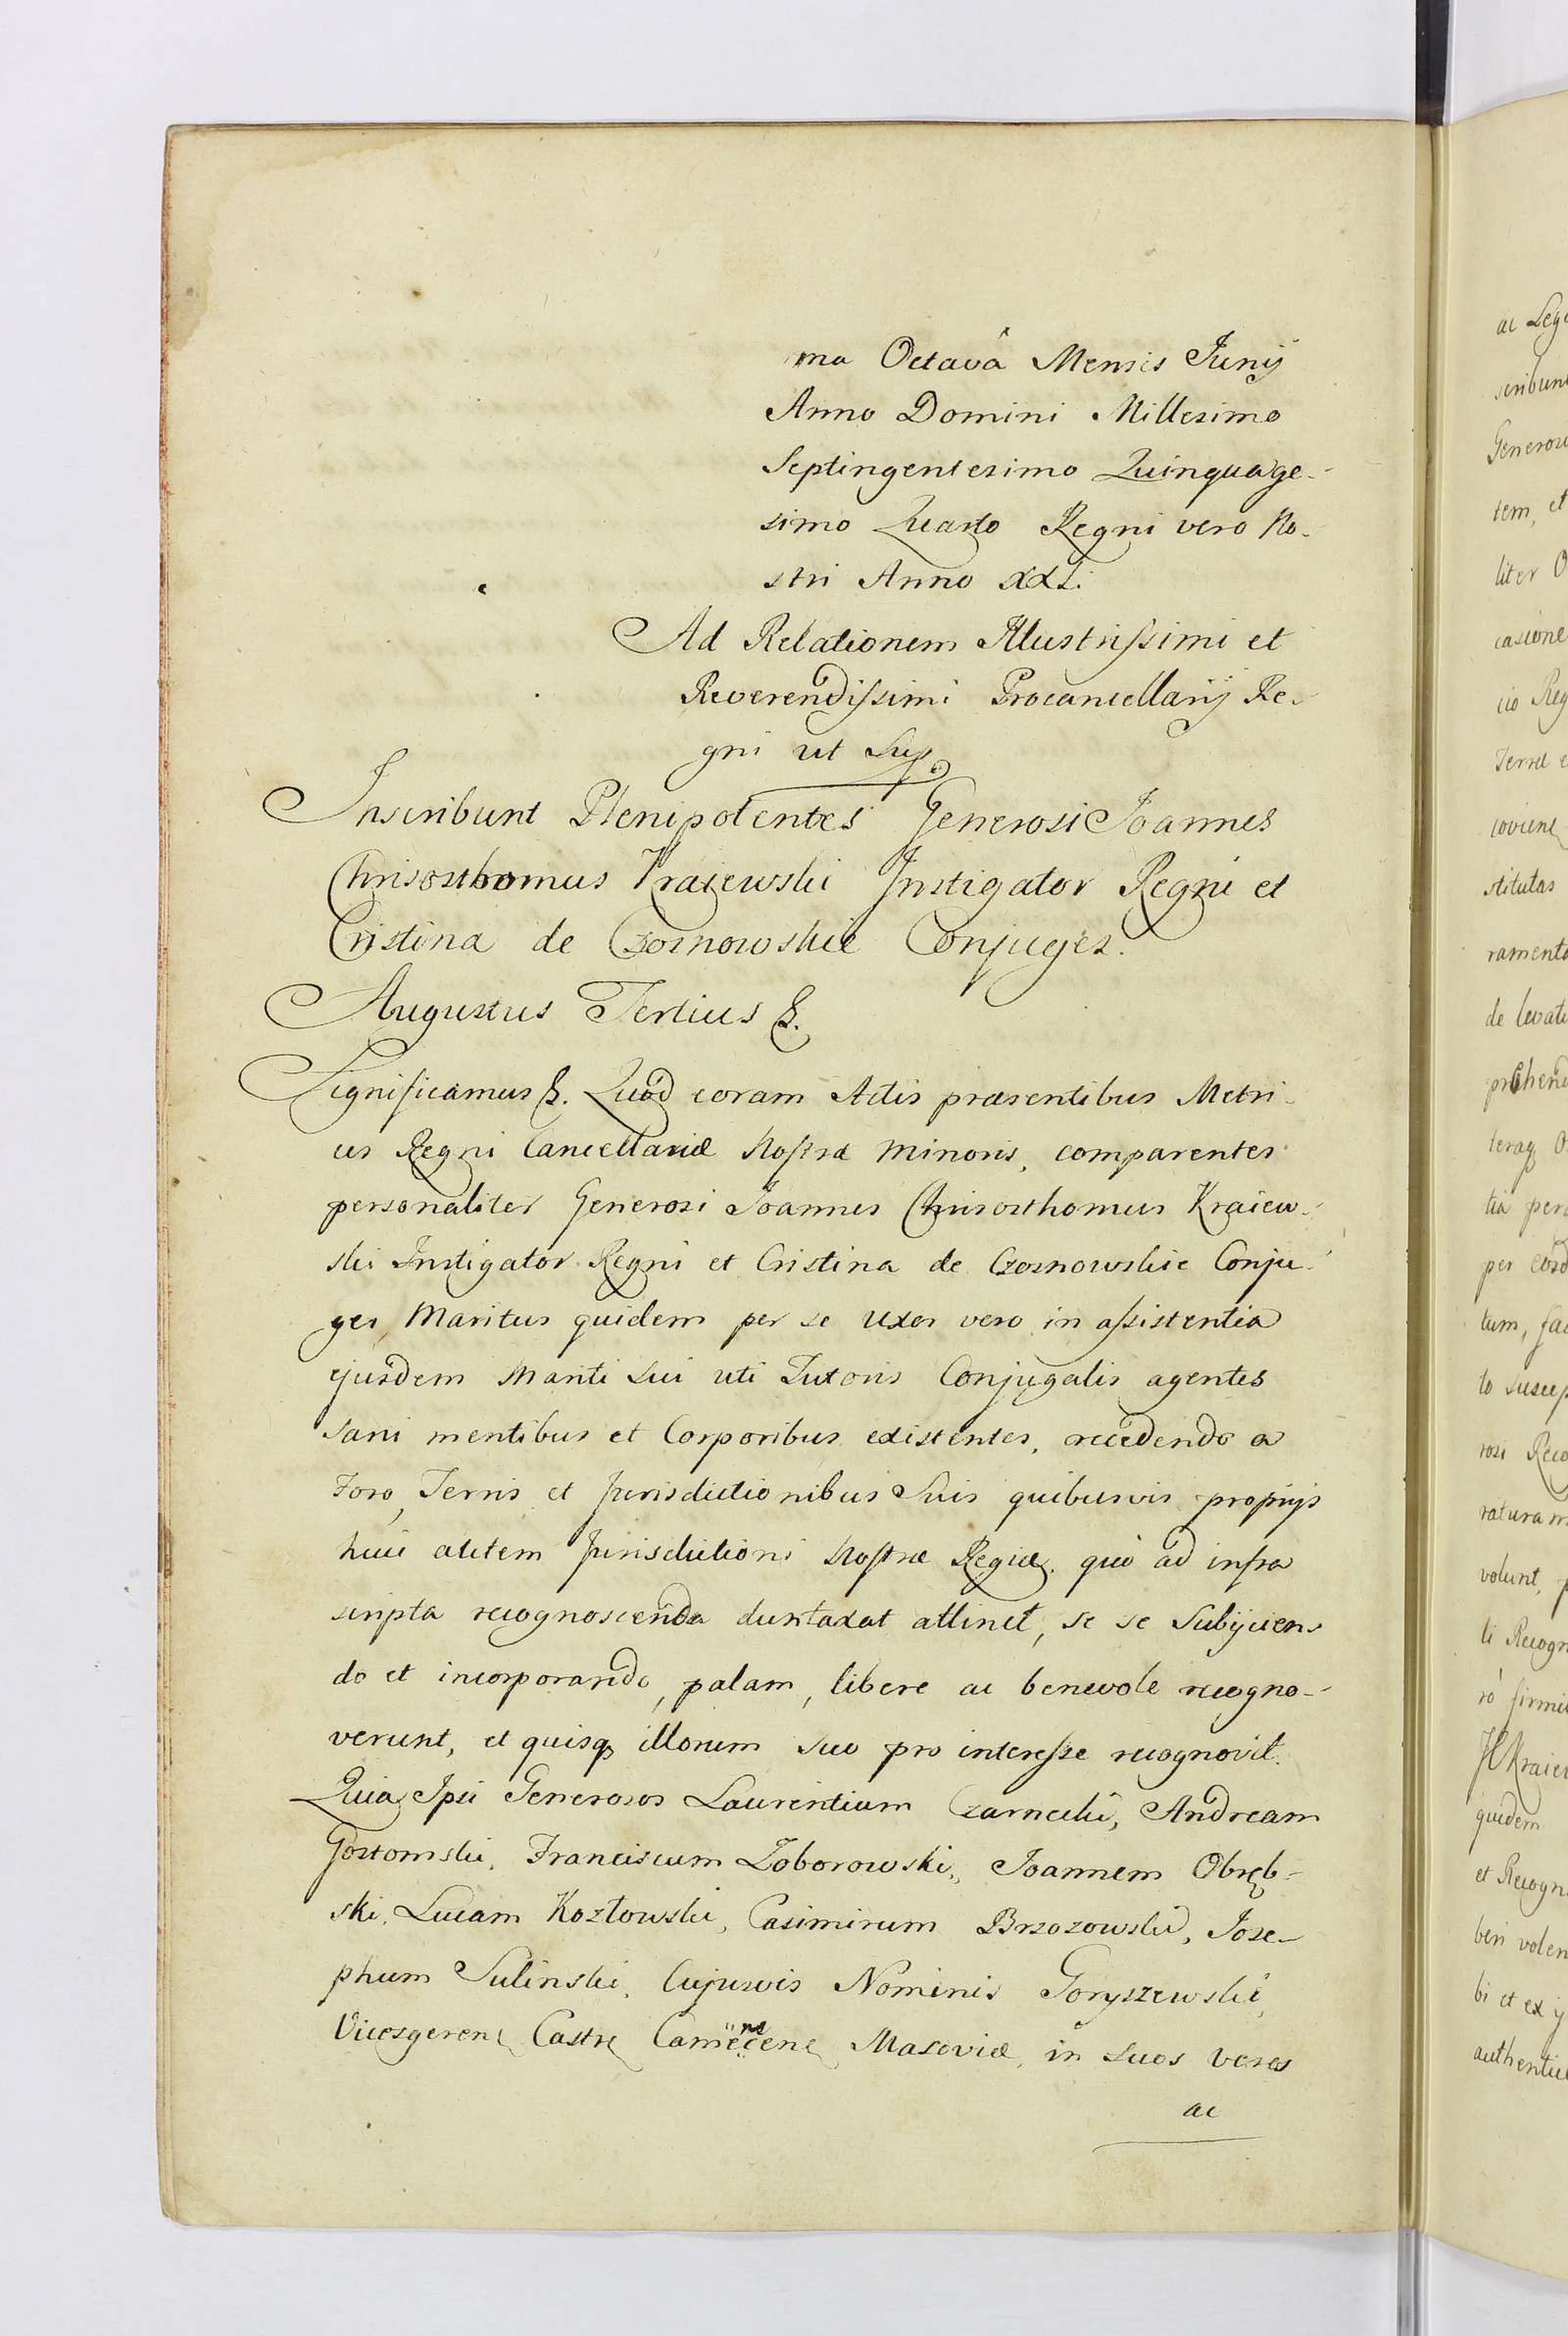 ma Octavâ Mensis Junij
Anno Domini Millesimo
Septingentesimo Quinquage-
simo Quarto Regni vero No-
stri Anno XXI.
Ad Relationem Illustrissimi et
Reverendissimi Procancellarij Re-
gni ut Sup
Inscribunt Plenipotentes Generosi Joannes
Chrisosthomus Kraiewski Instigator Regni et
Cristina de Czosnowskie Conjuges.
Augustus Tertius &.
Significamus &. Quod coram Actis præsentibus Metri-
ces Regni Cancellariæ Nostræ Minoris, comparentes
personaliter Generosi Joannes Chrisosthomus Kraiew-
ski Instigator Regni et Cristina de Czosnowskie Conju-
ges, Maritus quidem per se Uxor vero in assistentia
ejusdem Mariti Sui uti Tutoris Conjugalis agentes
Sani mentibus et Corporibus existentes, recedendo a
Foro, Terris et Jurisdictionibus Suis quibusvis proprijs
huic autem Jurisdictioni Nostræ Regiæ, quo ad infra
scripta recognoscenda duntaxat attinet, se se Subijcien-
do et incorporando, palam, libere ac benevole recogno-
verunt, et quisq illorum suo pro interesse recognovit.
Quia Ipsi Generosos Laurentium Czarnecki, Andream
Gostomski, Franciscum Zoborowski, Joannem Obręb-
ski, Lucam Kozłowski, Casimirum Brzozowski, Jose-
phum Sulinski, Cujusvis Nominis Goryszewski,
Vicesgerenę Castrę Camenecenę Masoviæ, in suos veros
ac
ac
Generos
tem, et
liter O
casione
cio Reg
Terræ
stitutos
ramento
de levat
tia per
tum, fac
to suscep
volunt, p
ti Recogn
quidem
et Recogn
beri volen
bi et ex
authentic